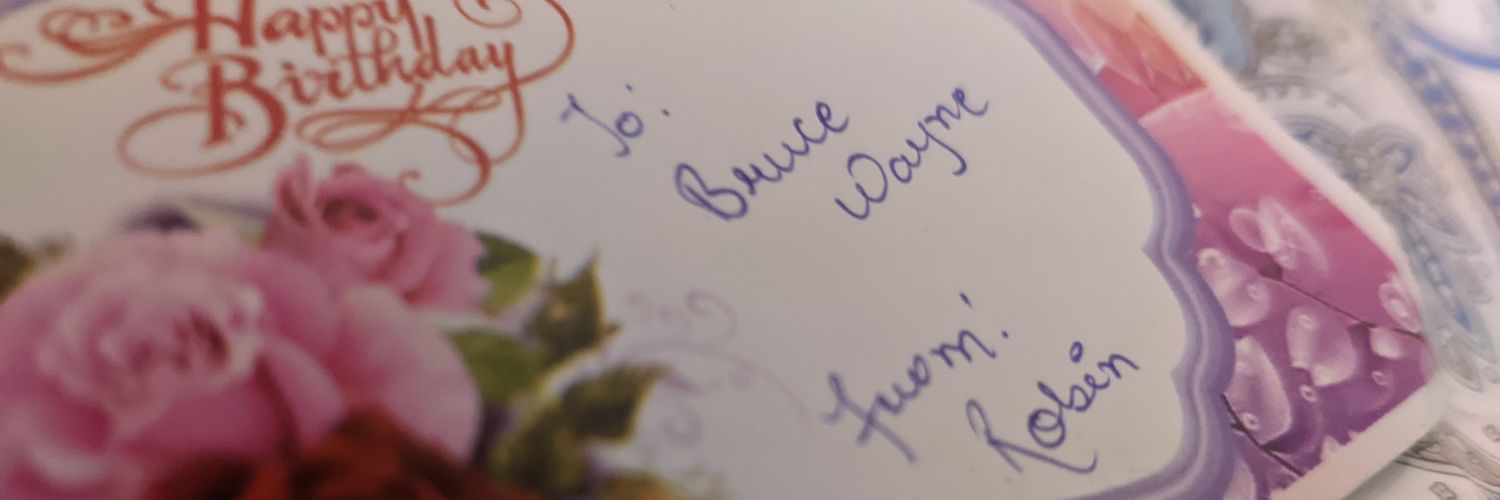 Happy
Birthday
To:
Bruce
Wayne
From:
Robin